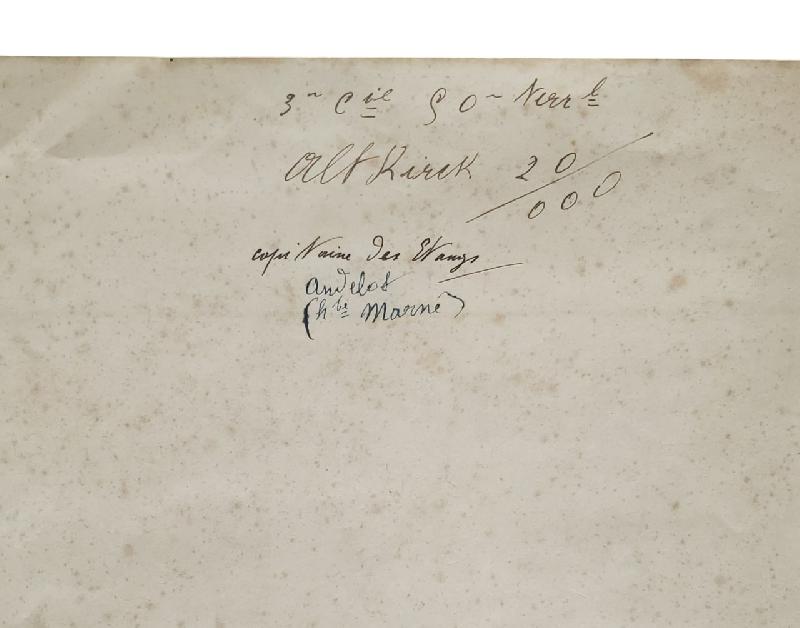 3e Cie 50e Terral
Altkirck 20/000
capitaine des Etangs
Andelot
(hte Marne)